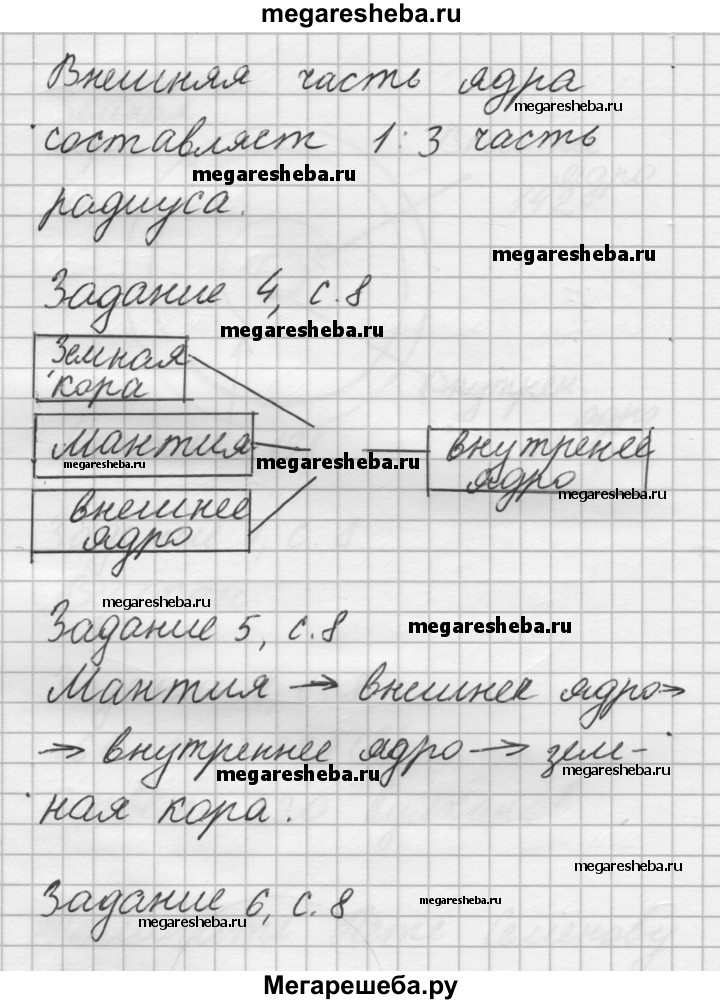 megaresheba.ru
Внешняя часть ядра
megaresheba.ru
составляет 1:3 часть
megaresheba.ru
радиуса.
megaresheba.ru
Задание 4, с.8
megaresheba.ru
Земная
кора
мантия
megaresheba.ru
megaresheba.ru
внутренее
ядро
megaresheba.ru
внешнее
ядро
megaresheba.ru
Задание 5, с.8
megaresheba.ru
Мантия → внешнее ядро→
→ внутреннее ядро → зем-
megaresheba.ru
megaresheba.ru
ная кора.
megaresheba.ru
Задание 6, с.8
megaresheba.ru
megaresheba.ru
Мегарешеба.ру